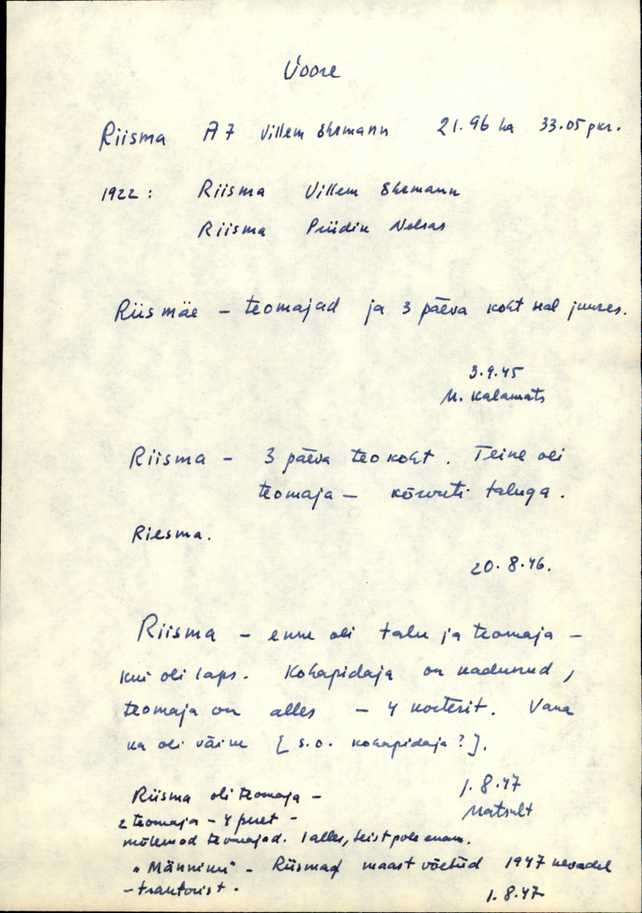 Voore
Riisma A7 Villem Ehrmann 21.96 ha 33.05 pkr.
1922: Riisma Villem Ehrmann
Riisma Priidik
Riismäe – teomajad ja 3 päeva koht seal juures.
3.9.45
M. Kalamats
Riisma – 3 päeva teokoht. Teine oli
teomaja – kõrvuti taluga.
Riesma.
20.8.46.
Riisma – enne oli talu ja teomaja –
kui oli laps. Kohapidaja on kadunud,
teomaja on alles – 4 korterit. Vana
ka oli väike [s.o. kohapidaja?].
1.8.47
Riisma oli teomaja –
2 teomaja – 4 peret –
mõlemad teomajad. 1 alles, teist pole enam.
"Männiku" – Riismad maast võetud 1947 kevadel
– traktorist.
1.8.47